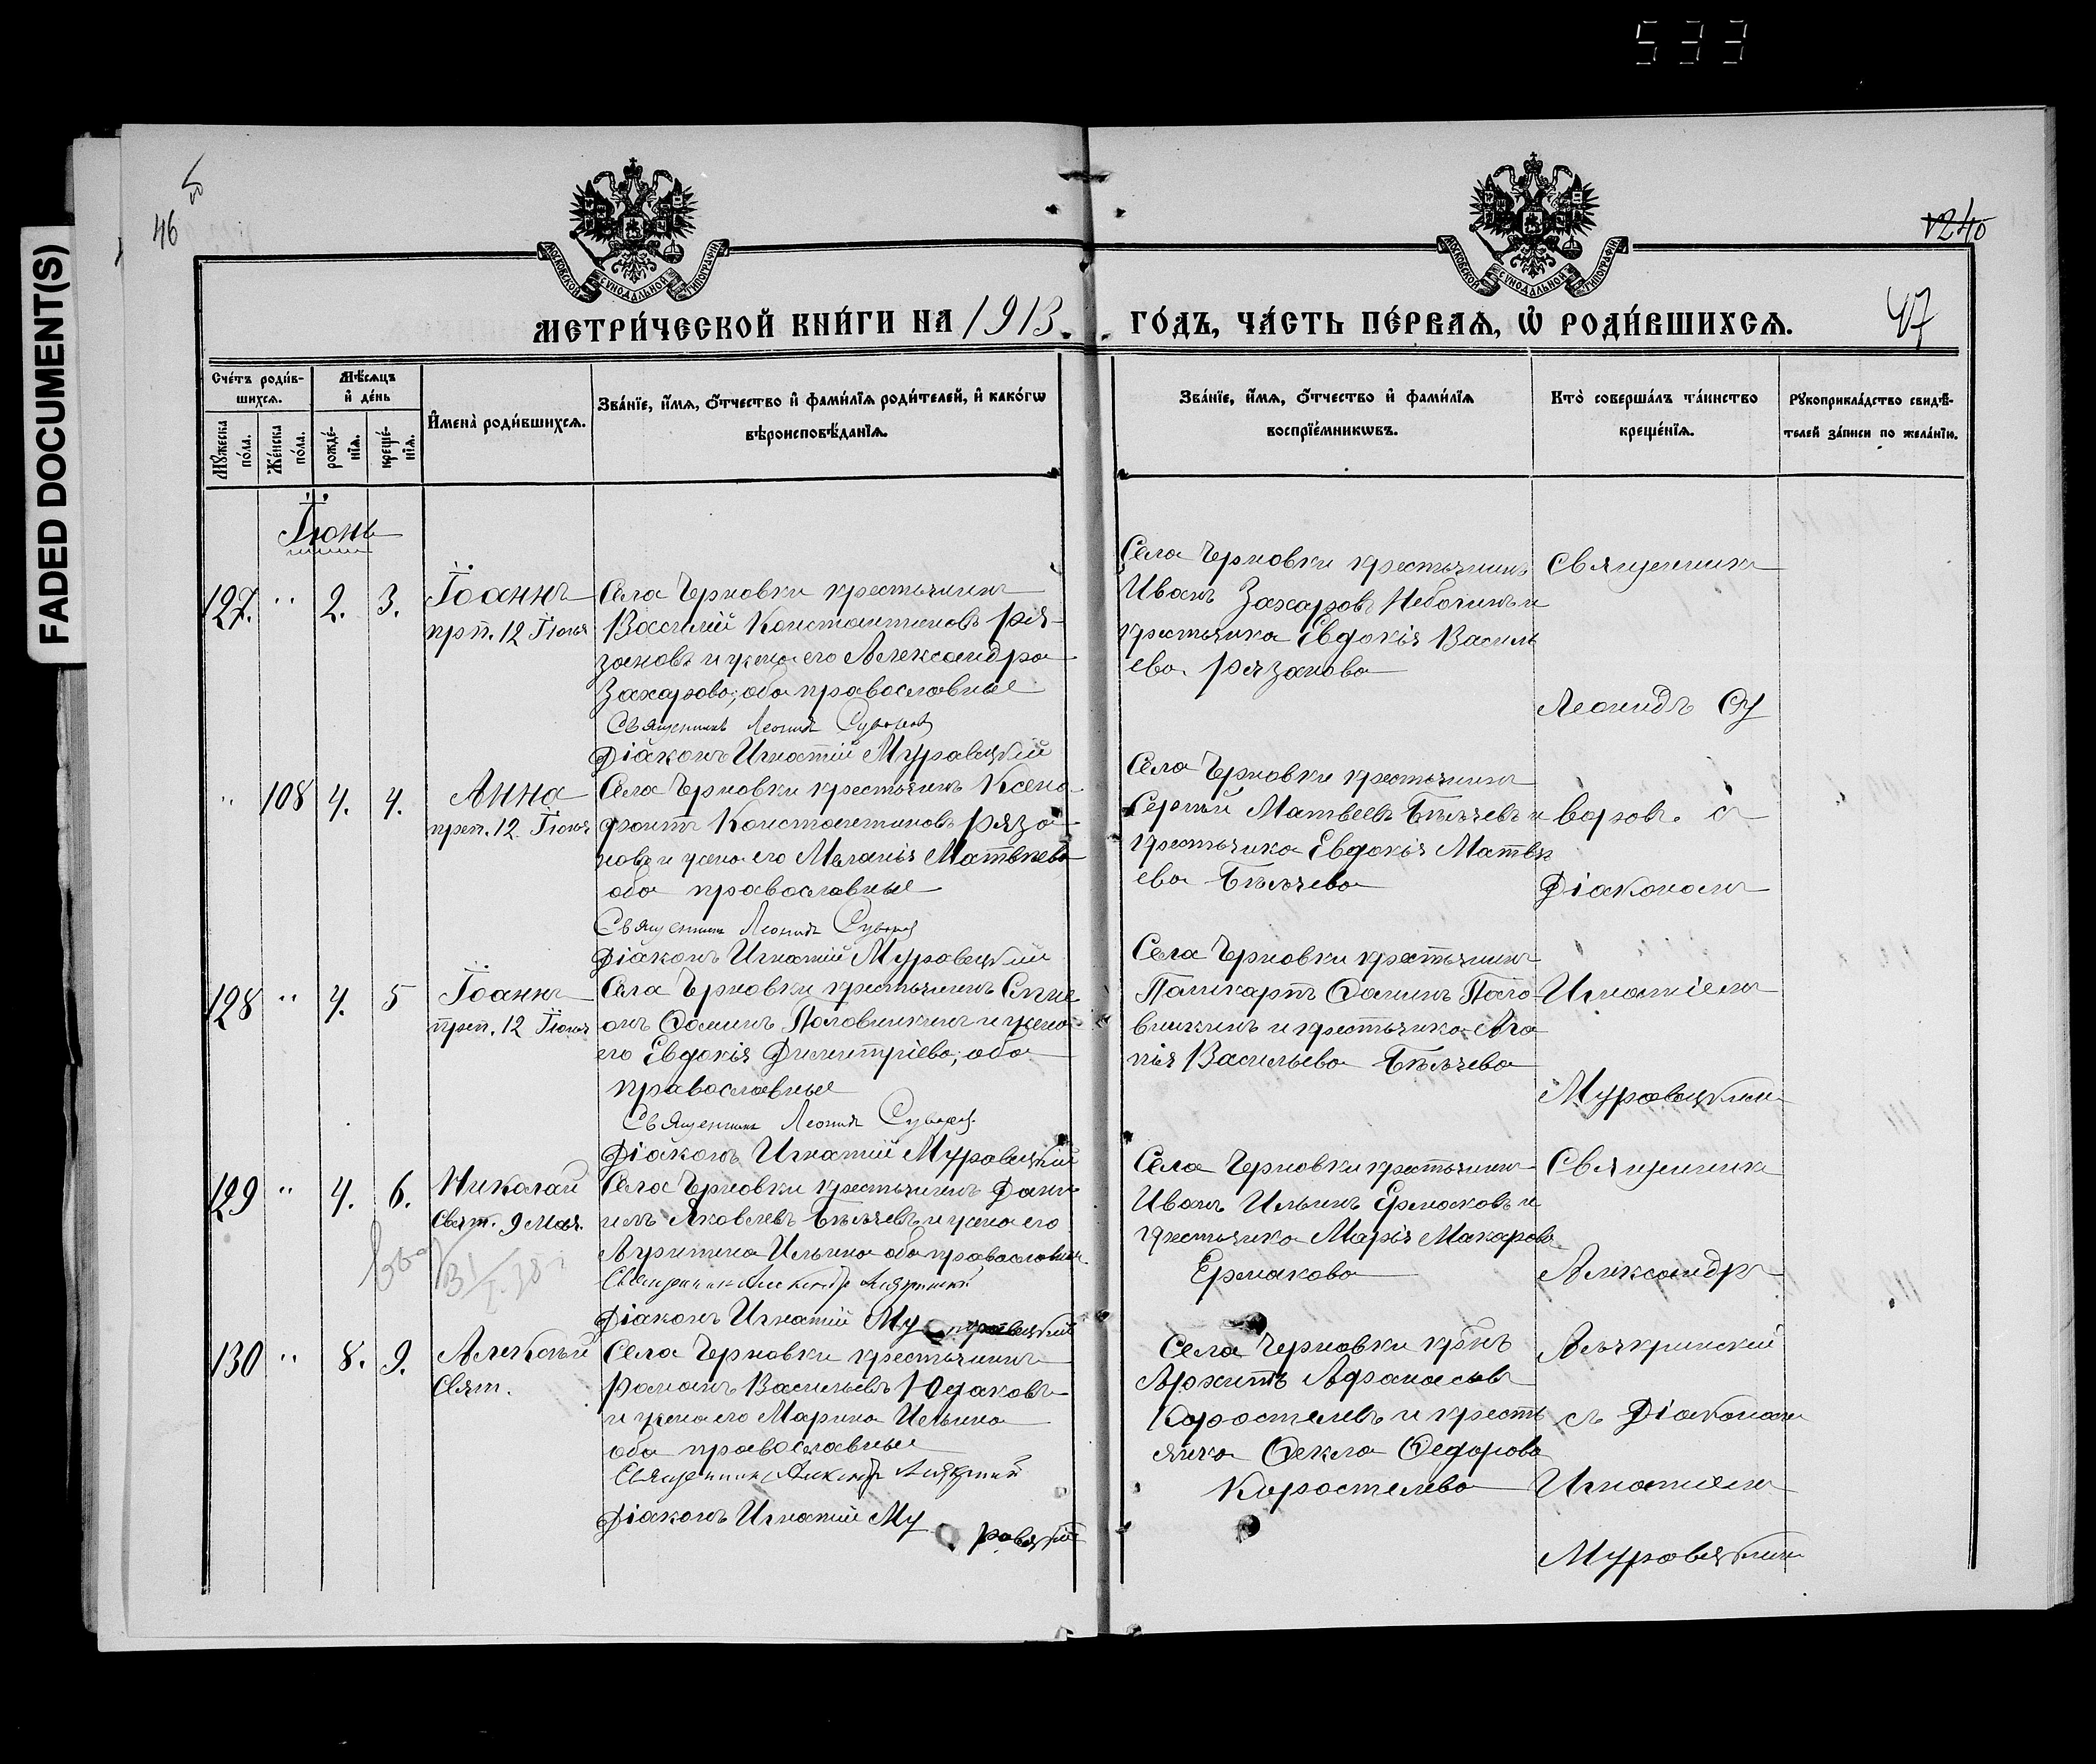 533
FADED DOCUMENT(S)
46
240
47
МОСКОВСКОЙ СѴНОДАЛЬНОЙ ТИПОГРАФІИ
МОСКОВСКОЙ СѴНОДАЛЬНОЙ ТИПОГРАФІИ
МЕТРИ́ЧЕСКОЙ КНИ́ГИ НА 1913.
ГО́ДЪ, ЧА́СТЬ ПЕ́РВАѦ, Ѡ҆ РОДИ́ВШИХСѦ.
Сче́тъ роди́в-
шихсѧ.
Мѣ́сѧцъ
и҆ де́нь
Мꙋ́жеска
по́ла.
Же́нска
по́ла.
рожде́-
нїѧ.
креще́-
нїѧ.
И҆мена̀ роди́вшихсѧ.
Зва́нїе, и҆́мѧ, ѻ҆́тчество и҆ фами́лїѧ роди́телей, и҆ како́гѡ
вѣроисповѣ́данїѧ.
Зва́нїе, и҆́мѧ, ѻ҆́тчество и҆ фами́лїѧ
воспрїе́мникѡвъ.
Кто̀ соверша́лъ та́инство
креще́нїѧ.
Рꙋкоприкла́дство свидѣ́-
телей за́писи по жела́нїю.
Іюнь
127. " 2. 3.
Іоаннъ
прп. 12 Іюня
Села Черновки крестьянинъ
Василій Константиновъ Ря-
зановъ и жена его Александра
Захарова; оба православные
Священникъ Леонидъ Суворовъ
Діаконъ Игнатій Муравецкій
Села Черновки крестьянинъ
Иванъ Захаровъ и
крестьянка Евдокія Василь
ева Рязанова
" 108 4. 4.
Анна
преп. 12 Іюня
Села Черновки крестьянинъ Ксено-
фонтъ Константиновъ Ряза-
новъ и жена его Меланія Матвѣева
оба православные
Священникъ Леонидъ Суворовъ
Діаконъ Игнатій Муравецкій
Села Черновки крестьянинъ
Сергѣй Матвеевъ Бѣляевъ и
крестьянка Евдокія Матвѣ
ева Бѣляева
128 " 4. 5
Іоаннъ
преп. 12 Іюня
Села Черновки крестьянинъ
Ѳоминъ Половинкинъ и жена
его Евдокія Димитріева; оба
православные
Священникъ Леонидъ Суворовъ
Діаконъ Игнатій Муравецкій
Села Черновки крестьянинъ
Ѳоминъ Поло-
винкинъ и крестьянка Ага-
пія Васильева Бѣляева
Священникъ
Леонидъ Су
воровъ съ
Діакономъ
Игнатіемъ
Муравецкимъ
129 " 4. 6.
Николай
Свят. 9 Мая.
Села Черновки крестьянинъ Дани-
илъ Яковлевъ Бѣляевъ и жена его
Ильина оба православные
Священникъ Александръ Алякринскій
Діаконъ Игнатій Муравецкій
Села Черновки крестьянинъ
Иванъ Ильинъ Ермаковъ и
крестьянка Марія Макарова
Ермакова
130 " 8. 9.
Алексій
Свят.
Села Черновки крестьянинъ
Романъ Васильевъ Юдаковъ
и жена его Марина Ильина
оба православные
Священникъ Александръ Алякринскій
Діаконъ Игнатій Муравецкій
Села Черновки кр-нъ
Архипъ Афанасьевъ
Коростелевъ и кресть
янка Ѳекла Ѳедорова
Коростелева
Священникъ
Александръ
Алякринскій
съ Діакономъ
Игнатіемъ
Муравецкимъ